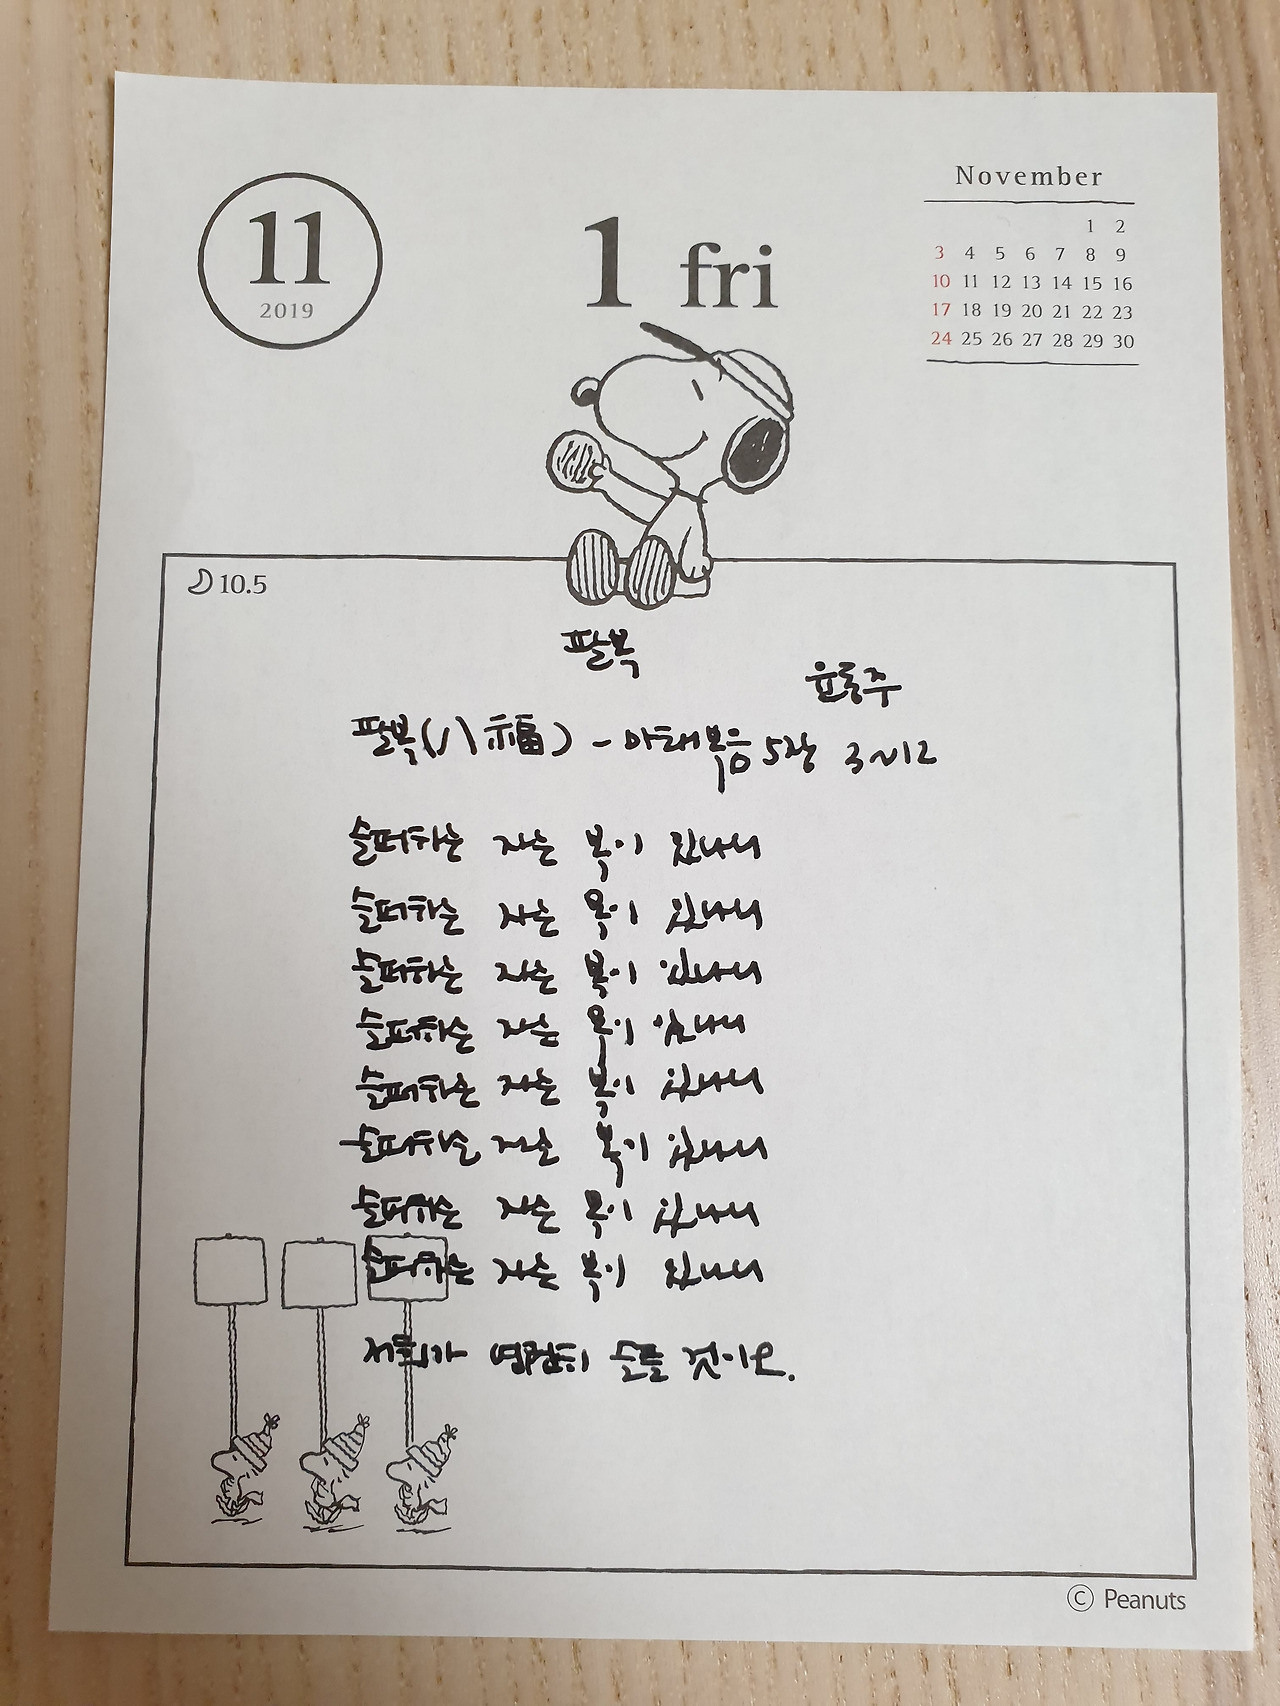 11
2019
1 fri
November
1 2
3 4 5 6 7 8 9
10 11 12 13 14 15 16
17 18 19 20 21 22 23
24 25 26 27 28 29 30
10.5
팔복
윤동주
팔복(八福) - 마태복음 5장 3~12
슬퍼하는 자는 복이 있나니
슬퍼하는 자는 복이 있나니
슬퍼하는 자는 복이 있나니
슬퍼하는 자는 복이 있나니
슬퍼하는 자는 복이 있나니
슬퍼하는 자는 복이 있나니
슬퍼하는 자는 복이 있나니
슬퍼하는 자는 복이 있나니
저희가 영원히 슬플 것이오.
© Peanuts